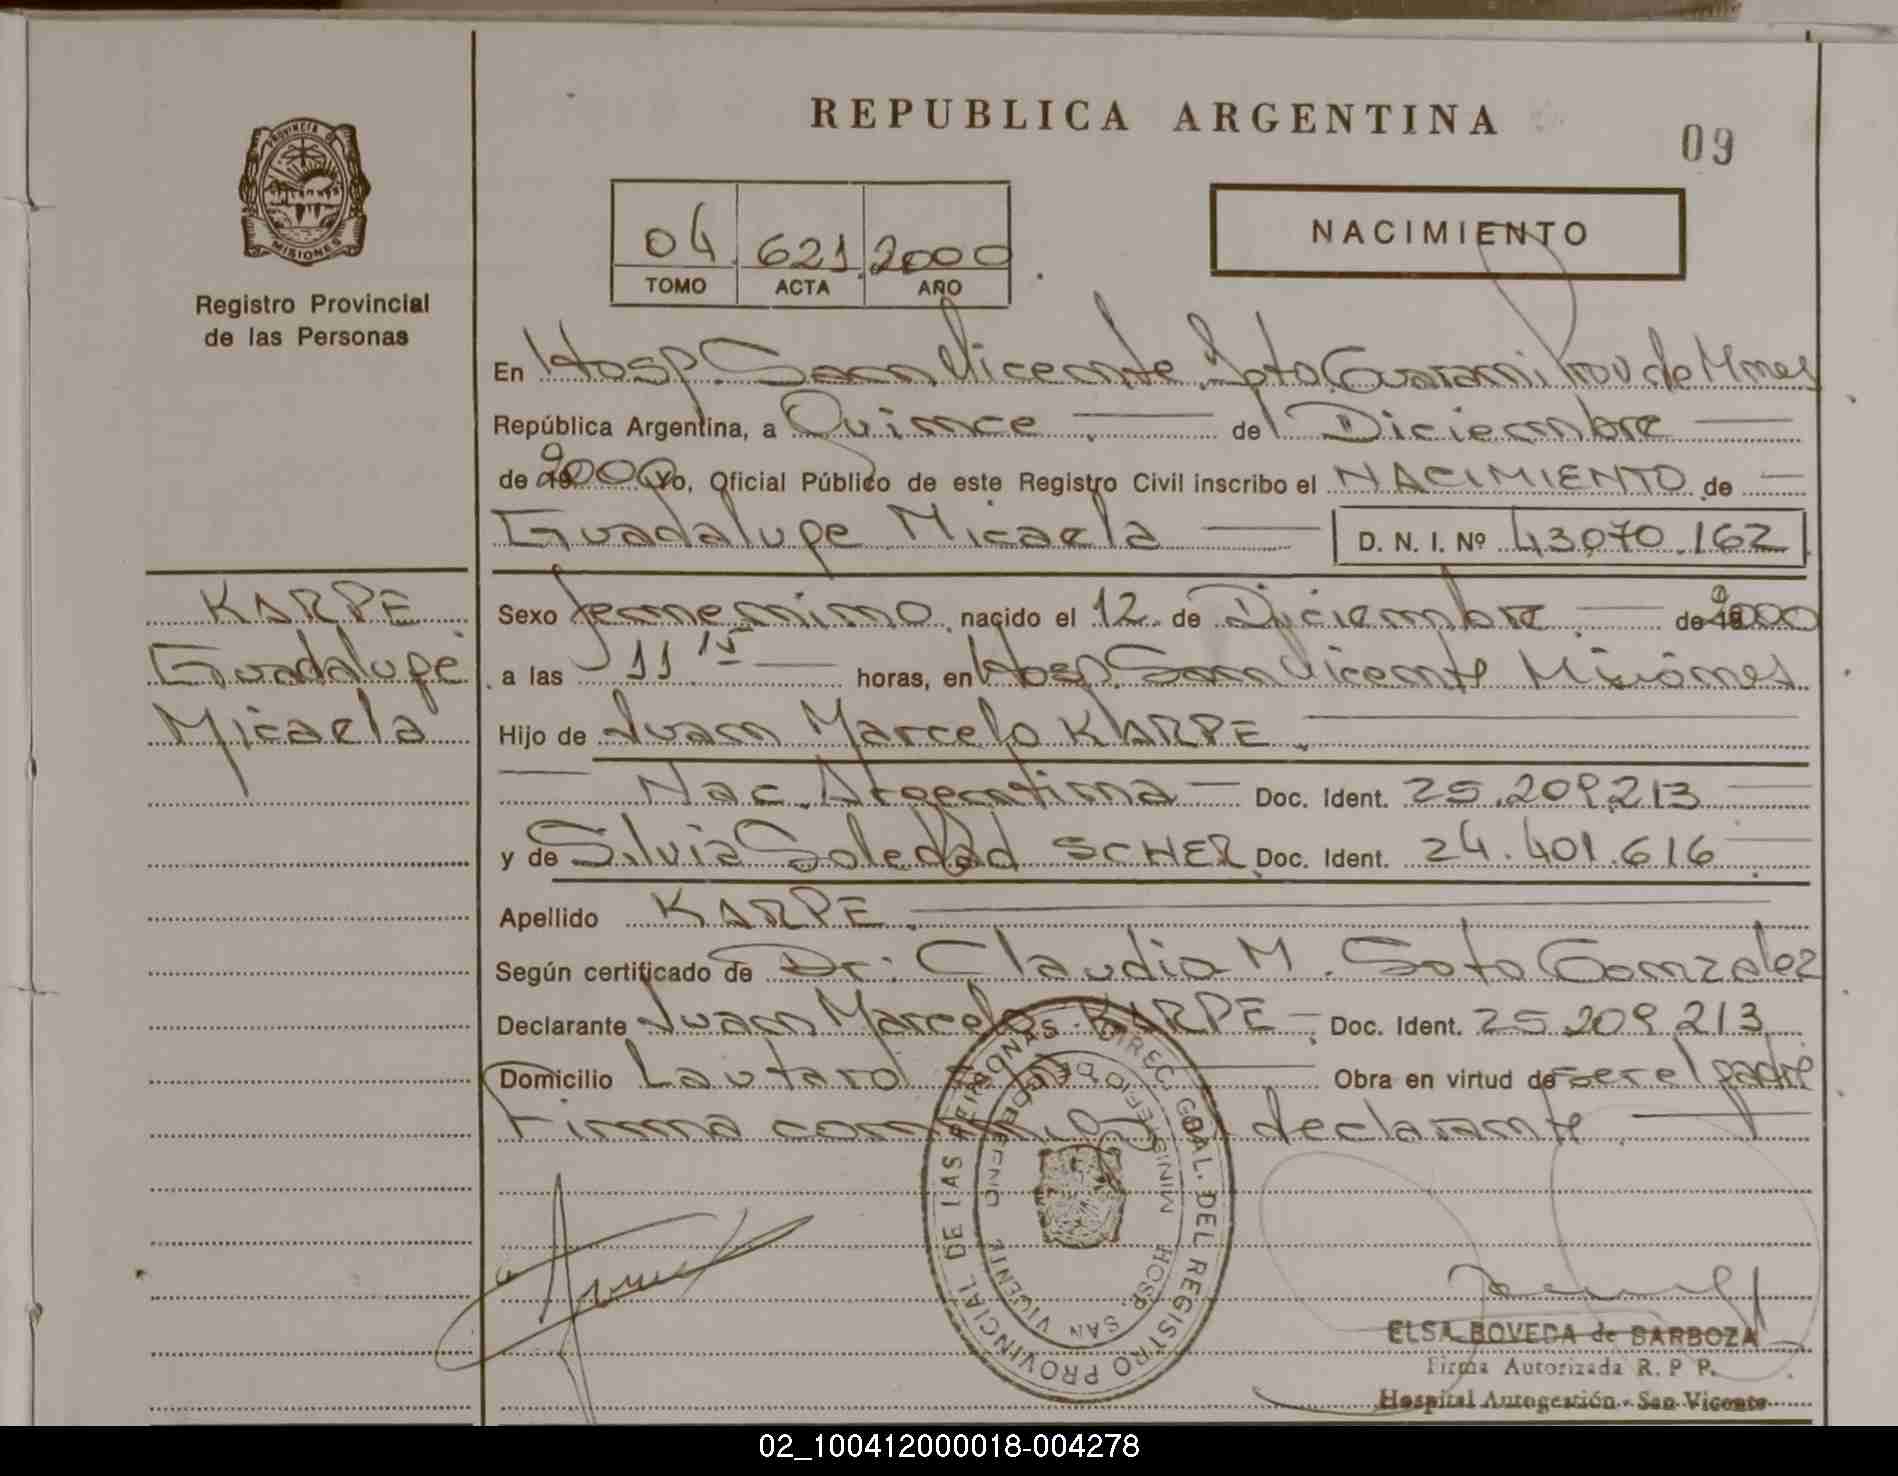 REPUBLICA ARGENTINA
09
PROVINCIA DE
MISIONES
Registro Provincial
de las Personas
04 621 2000
TOMO ACTA AÑO
NACIMIENTO
En Hosp. San Vicente Dpto. Guarani Prov de Mnes
República Argentina, a Quince de Diciembre
de 2000 Yo, Oficial Público de este Registro Civil inscribo el NACIMIENTO de
Guadalupe Micaela D. N. I. Nº 43.070.162
KARPE
Guadalupe
Micaela
Sexo femenino nacido el 12 de Diciembre de 2000
a las 11 15 horas, en Hosp. San Vicente Misiones
Hijo de Juan Marcelo KARPE
Nac. Argentina Doc. Ident. 25.209.213
y de Silvia Soledad SCHER Doc. Ident. 24.401.616
Apellido KARPE
Según certificado de Dr: Claudia M. Soto Gonzalez
Declarante Juan Marcelo KARPE Doc. Ident. 25.209.213
Domicilio Lautaro Obra en virtud de ser el padre
Firma declarante
DIREC. GRAL. DEL REGISTRO PROVINCIAL DE LAS PERSONAS
HOSP. SAN VICENTE
ELSA BOVEDA de BARBOZA
Firma Autorizada R. P. P.
Hospital Autogestión - San Vicente
02_100412000018-004278